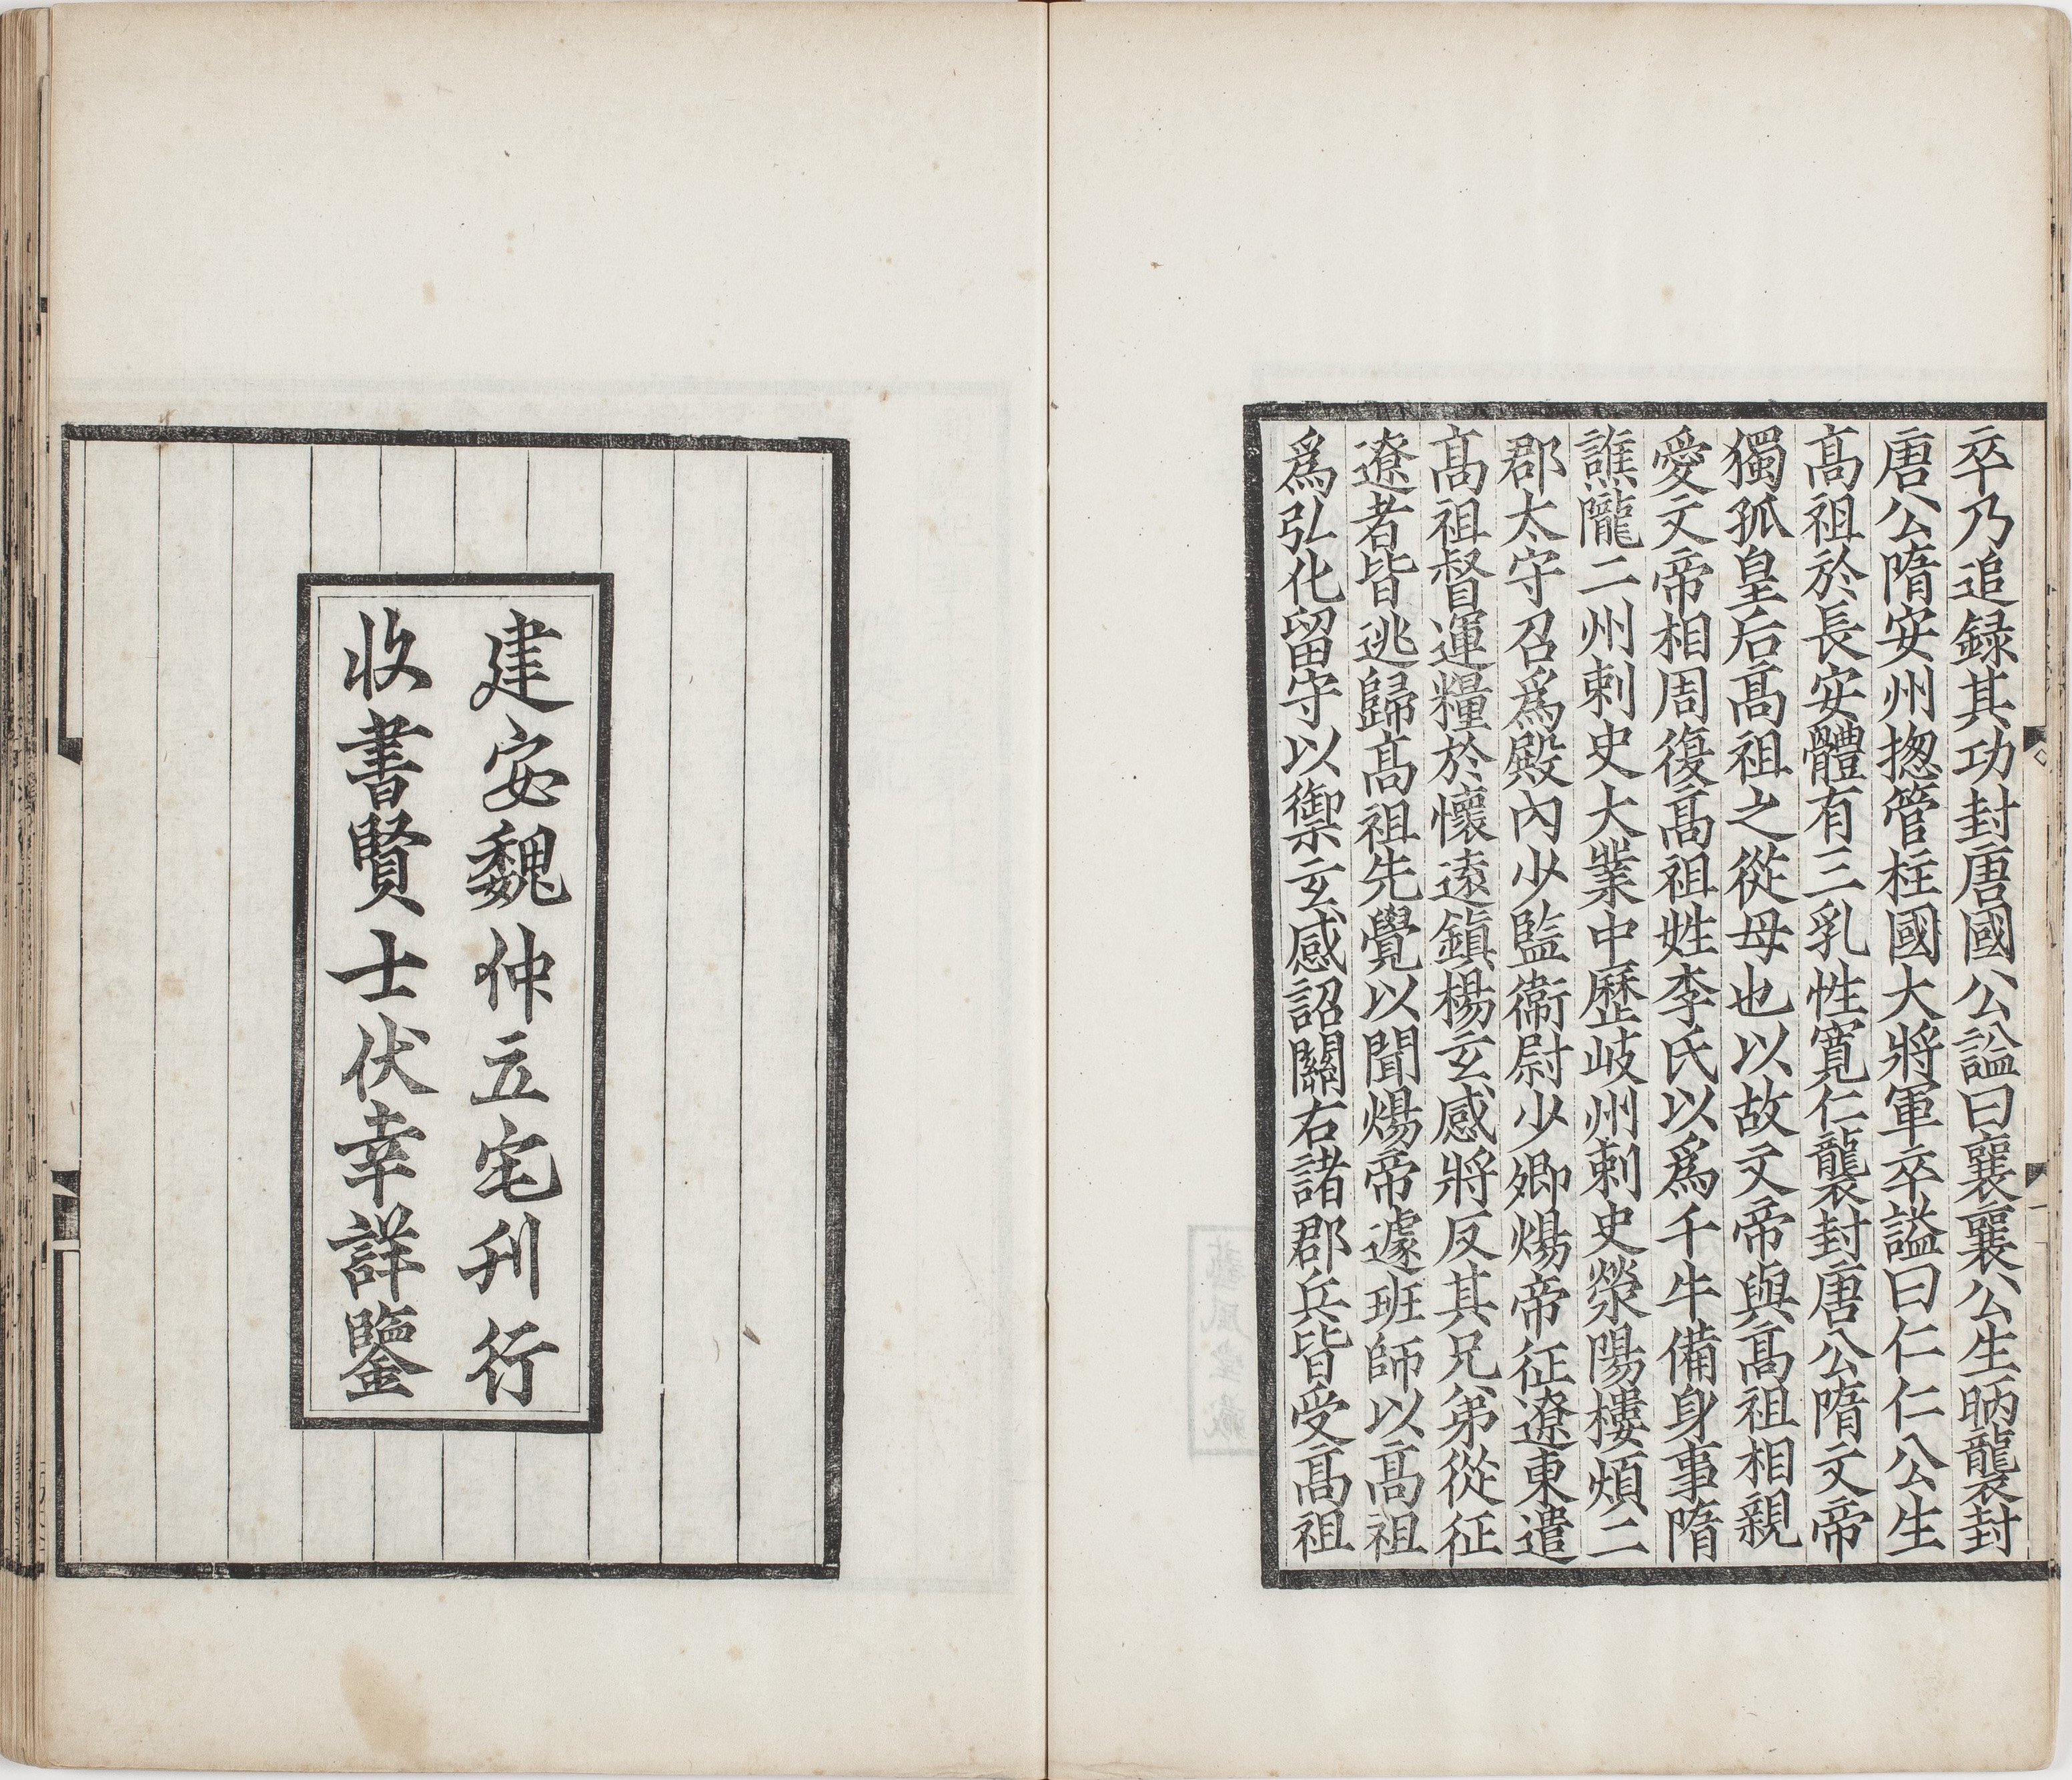 卒乃追録其功封唐國公謚曰襄襄公生昞襲封
唐公隋安州揔管柱國大將軍卒謚曰仁仁公生
髙祖於長安體有三乳性寛仁襲封唐公隋文帝
獨孤皇后髙祖之從母也以故文帝與髙祖相親
愛文帝相周復髙祖姓李氏以爲千牛備身事隋
譙隴二州刺史大業中歷岐州刺史滎陽樓煩二
郡太守召爲殿內少監衛尉少卿煬帝征遼東遣
髙祖督運糧於懷遠鎮楊玄感將反其兄弟從征
遼者皆逃歸髙祖先覺以聞煬帝遽班師以髙祖
爲弘化留守以禦玄感詔關右諸郡兵皆受髙祖
建安魏仲立宅刊行
收書賢士伏幸詳鑒